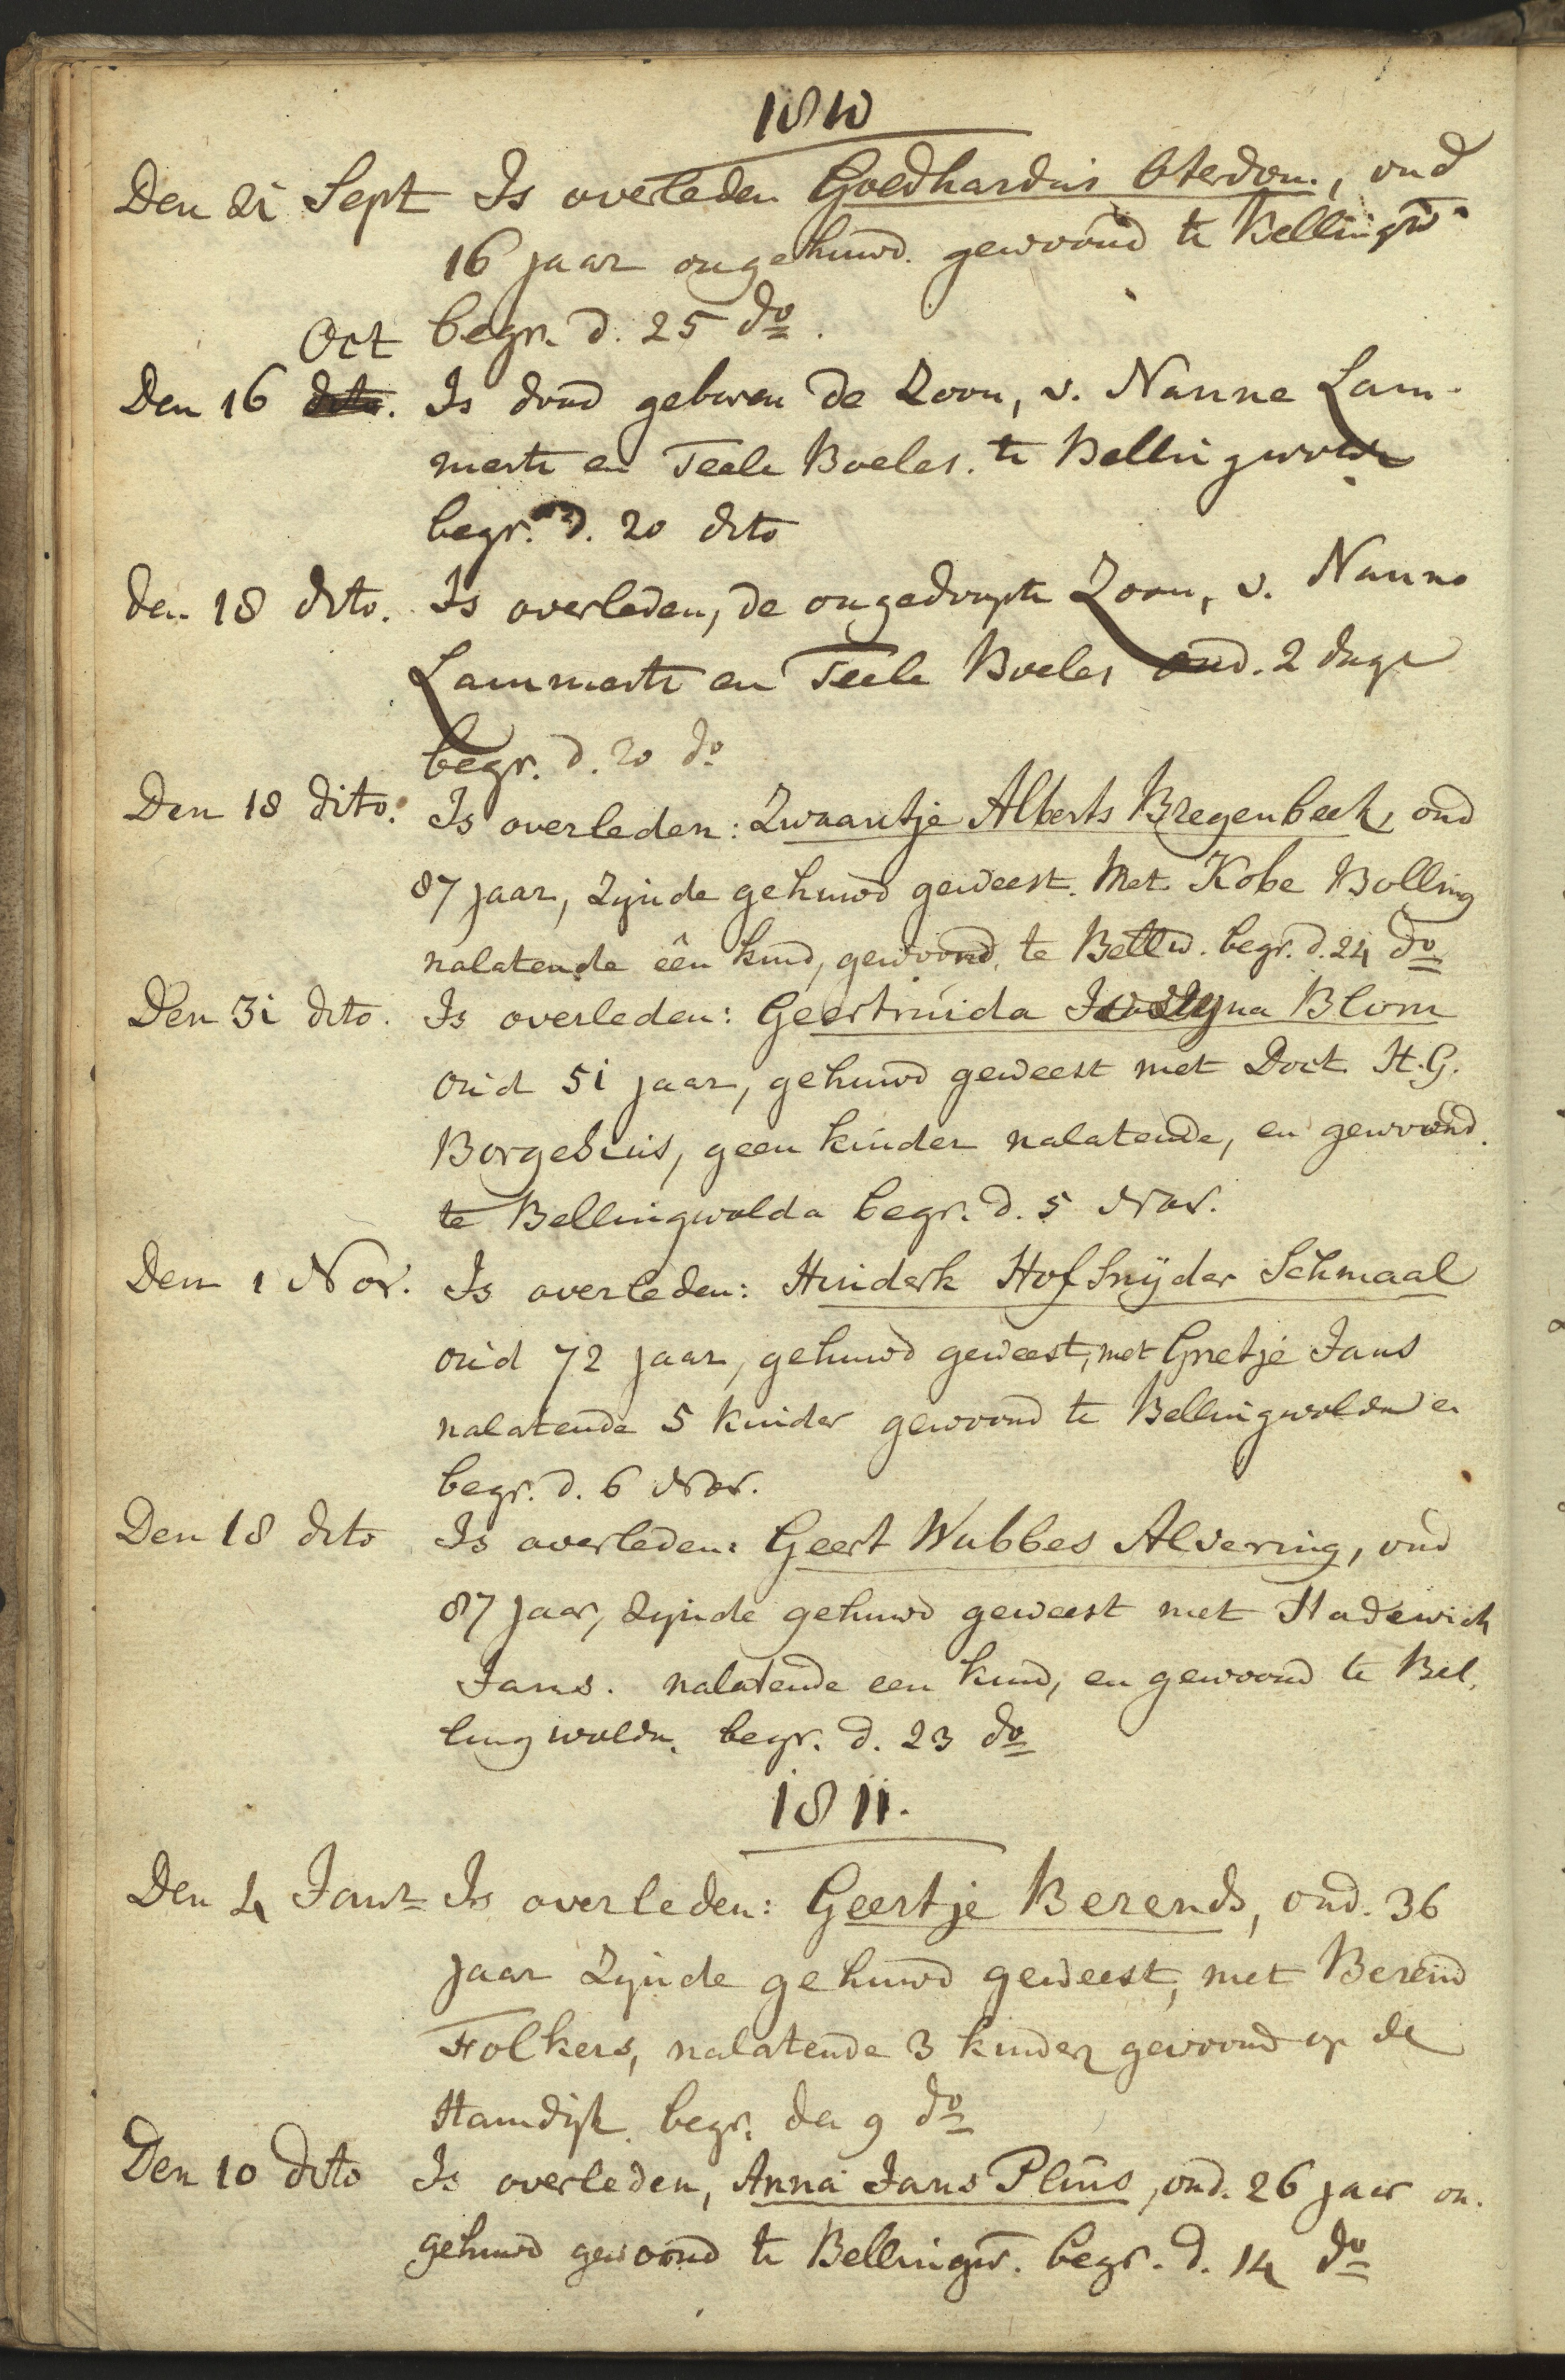 1810
Den 21 Sept Is overleden Goedhardus Oterdom., oud
16 jaar ongehuwd. gewoond te Bellingw.
begr. d. 25 do.
Oct
Den 16 dito. Is dood geboren de Zoon, v. Nanne Lam-
merts en Teele Boeles. te Bellingwolde
begr. d. 20 dito
den 18 dito. Is overleden, de ongedoopte Zoon, v. Nanno
Lammerts en Teele Boeles oud. 2 dage
begr. d. 20 do
Den 18 dito. Is overleden: Zwaantje Alberts Bregenbeek, oud
87 jaar, Zynde gehuwd geweest. Met Kobe Bolling
nalatende één kind, gewoond. te Bellw. begr. d. 24 do
Den 31 dito. Is overleden: Geertruida Blom
oud 51 jaar, gehuwd geweest met Doct. H. G.
Borgesius, geen kinder nalatende, en gewoond.
te Bellingwolda begr. d. 5 Nov.
Den 1 Nov. Is overleden: Hinderk Hofsnyder Schmaal
oud 72 jaar, gehuwd geweest, met Grietje Jans
nalatende 5 kinder gewoond te Bellingwolde en
begr. d. 6 Nov.
Den 18 dito Is overleden: Geert Wubbes Alvering, oud
87 jaar, Zynde gehuwd geweest met Hadewich
Jans. nalatende een kind, en gewoond te Bel,
lingwolde. begr. d. 23 do
1811.
Den 4 Janr Is overleden: Geertje Berends, oud. 36
jaar Zynde gehuwd geweest, met Berend
Folkers, nalatende 3 kinder gewoond op de
Hamdijk. begr. den 9 do
Den 10 dito Is overleden, Anna Jans Pluis, oud. 26 jaar on.
gehuwd gewoond te Bellingw. begr. d. 14 do